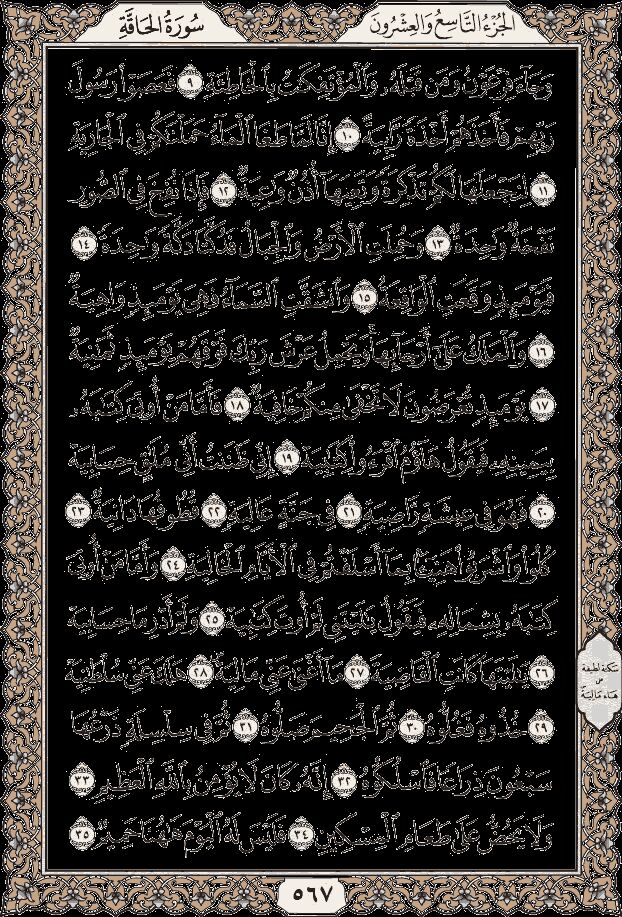 سُورَةُ الحَاقَّةِ
الجُزْءُ التَّاسِعُ وَالعِشْرُونَ
وَجَآءَ فِرْعَوْنُ وَمَن قَبْلَهُۥ وَٱلْمُؤْتَفِكَٰتُ بِٱلْخَاطِئَةِ ٩ فَعَصَوْا۟ رَسُولَ
رَبِّهِمْ فَأَخَذَهُمْ أَخْذَةً رَّابِيَةً ١٠ إِنَّا لَمَّا طَغَا ٱلْمَآءُ حَمَلْنَٰكُمْ فِى ٱلْجَارِيَةِ
١١ لِنَجْعَلَهَا لَكُمْ تَذْكِرَةً وَتَعِيَهَآ أُذُنٌ وَٰعِيَةٌ ١٢ فَإِذَا نُفِخَ فِى ٱلصُّورِ
نَفْخَةٌ وَٰحِدَةٌ ١٣ وَحُمِلَتِ ٱلْأَرْضُ وَٱلْجِبَالُ فَدُكَّتَا دَكَّةً وَٰحِدَةً ١٤
فَيَوْمَئِذٍ وَقَعَتِ ٱلْوَاقِعَةُ ١٥ وَٱنشَقَّتِ ٱلسَّمَآءُ فَهِىَ يَوْمَئِذٍ وَاهِيَةٌ
١٦ وَٱلْمَلَكُ عَلَىٰٓ أَرْجَآئِهَا وَيَحْمِلُ عَرْشَ رَبِّكَ فَوْقَهُمْ يَوْمَئِذٍ ثَمَٰنِيَةٌ
١٧ يَوْمَئِذٍ تُعْرَضُونَ لَا تَخْفَىٰ مِنكُمْ خَافِيَةٌ ١٨ فَأَمَّا مَنْ أُوتِىَ كِتَٰبَهُۥ
بِيَمِينِهِۦ فَيَقُولُ هَآؤُمُ ٱقْرَءُوا۟ كِتَٰبِيَهْ ١٩ إِنِّى ظَنَنتُ أَنِّى مُلَٰقٍ حِسَابِيَهْ
٢٠ فَهُوَ فِى عِيشَةٍ رَّاضِيَةٍ ٢١ فِى جَنَّةٍ عَالِيَةٍ ٢٢ قُطُوفُهَا دَانِيَةٌ ٢٣
كُلُوا۟ وَٱشْرَبُوا۟ هَنِيٓـًٔۢا بِمَآ أَسْلَفْتُمْ فِى ٱلْأَيَّامِ ٱلْخَالِيَةِ ٢٤ وَأَمَّا مَنْ أُوتِىَ
كِتَٰبَهُۥ بِشِمَالِهِۦ فَيَقُولُ يَٰلَيْتَنِى لَمْ أُوتَ كِتَٰبِيَهْ ٢٥ وَلَمْ أَدْرِ مَا حِسَابِيَهْ
٢٦ يَٰلَيْتَهَا كَانَتِ ٱلْقَاضِيَةَ ٢٧ مَآ أَغْنَىٰ عَنِّى مَالِيَهْ ٢٨ هَلَكَ عَنِّى سُلْطَٰنِيَهْ
٢٩ خُذُوهُ فَغُلُّوهُ ٣٠ ثُمَّ ٱلْجَحِيمَ صَلُّوهُ ٣١ ثُمَّ فِى سِلْسِلَةٍ ذَرْعُهَا
سَبْعُونَ ذِرَاعًا فَٱسْلُكُوهُ ٣٢ إِنَّهُۥ كَانَ لَا يُؤْمِنُ بِٱللَّهِ ٱلْعَظِيمِ ٣٣
وَلَا يَحُضُّ عَلَىٰ طَعَامِ ٱلْمِسْكِينِ ٣٤ فَلَيْسَ لَهُ ٱلْيَوْمَ هَٰهُنَا حَمِيمٌ ٣٥
سكتة لطيفة
هاء ماليه
٥٦٧